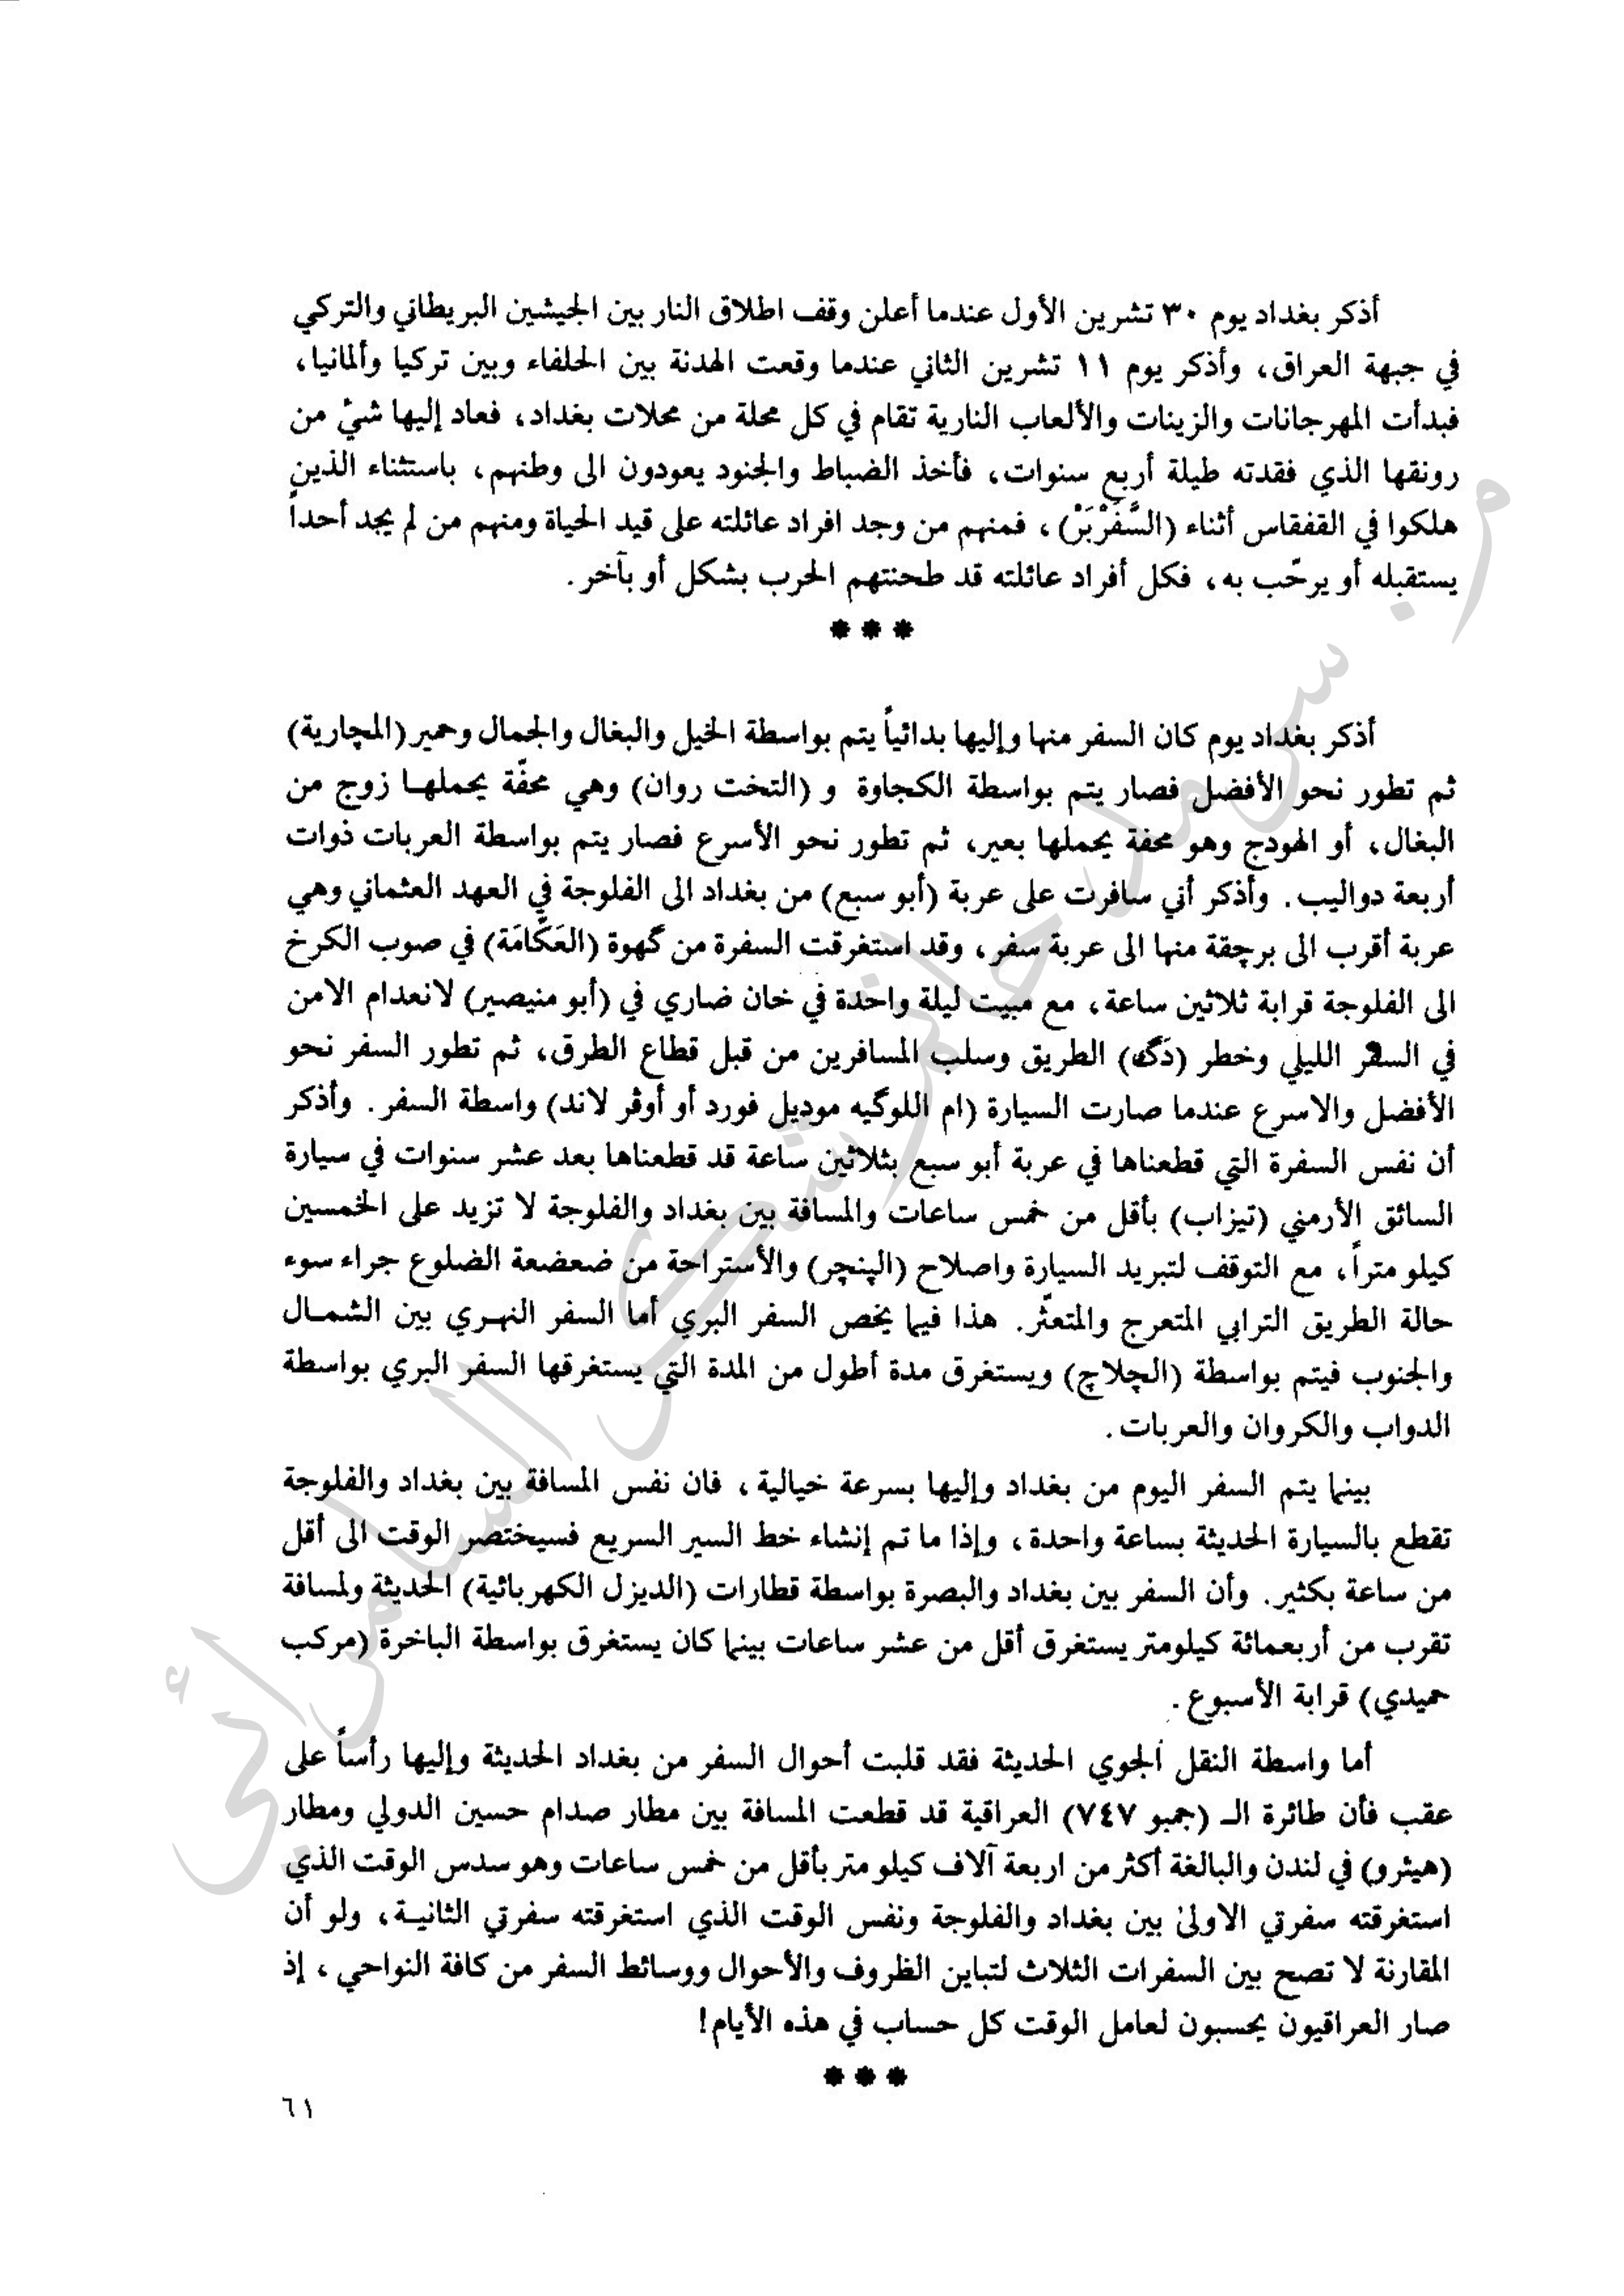 أذكر بغداد يوم ٣٠ تشرين الأول عندما أعلن وقف اطلاق النار بين الجيشين البريطاني والتركي
في جبهة العراق، وأذكر يوم ١١ تشرين الثاني عندما وقعت الهدنة بين الحلفاء وبين تركيا وألمانيا،
فبدأت المهرجانات والزينات والألعاب النارية تقام في كل محلة من محلات بغداد، فعاد إليها شيْ من
رونقها الذي فقدته طيلة أربع سنوات، فأخذ الضباط والجنود يعودون الى وطنهم، باستثناء الذين
هلكوا في القفقاس أثناء (السَّفَرْبَرْ)، فمنهم من وجد افراد عائلته على قيد الحياة ومنهم من لم يجد أحداً
يستقبله أو يرحّب به، فكل أفراد عائلته قد طحنتهم الحرب بشكل أو بآخر.
***
أذكر بغداد يوم كان السفر منها وإليها بدائياً يتم بواسطة الخيل والبغال والجمال وحمير (المچارية)
ثم تطور نحو الأفضل فصار يتم بواسطة الكجاوة و (التخت روان) وهي محفّة يحملهـا زوج من
البغال، أو الهودج وهو محفة يحملها بعير، ثم تطور نحو الأسرع فصار يتم بواسطة العربات ذوات
أربعة دواليب. وأذكر أني سافرت على عربة (أبو سبع) من بغداد الى الفلوجة في العهد العثماني وهي
عربة أقرب الى برچقة منها الى عربة سفر، وقد استغرقت السفرة من گهوة (العَكَّامَة) في صوب الكرخ
الى الفلوجة قرابة ثلاثين ساعة، مع مبيت ليلة واحدة في خان ضاري في (أبو منيصير) لانعدام الامن
في السفر الليلي وخطر (دَگ) الطريق وسلب المسافرين من قبل قطاع الطرق، ثم تطور السفر نحو
الأفضل والاسرع عندما صارت السيارة (ام اللوگيه موديل فورد أو أوڤر لاند) واسطة السفر. وأذكر
أن نفس السفرة التي قطعناها في عربة أبو سبع بثلاثين ساعة قد قطعناها بعد عشر سنوات في سيارة
السائق الأرمني (تيزاب) بأقل من خمس ساعات والمسافة بين بغداد والفلوجة لا تزيد على الخمسين
كيلو متراً، مع التوقف لتبريد السيارة واصلاح (الپنچر) والأستراحة من ضعضعة الضلوع جراء سوء
حالة الطريق الترابي المتعرج والمتعثّر. هذا فيما يخص السفر البري أما السفر النهـري بين الشمـال
والجنوب فيتم بواسطة (الچلاچ) ويستغرق مدة أطول من المدة التي يستغرقها السفر البري بواسطة
الدواب والكروان والعربات.
بينما يتم السفر اليوم من بغداد وإليها بسرعة خيالية، فان نفس المسافة بين بغداد والفلوجة
تقطع بالسيارة الحديثة بساعة واحدة، وإذا ما تم إنشاء خط السير السريع فسيختصر الوقت الى أقل
من ساعة بكثير. وأن السفر بين بغداد والبصرة بواسطة قطارات (الديزل الكهربائية) الحديثة ولمسافة
تقرب من أربعمائة كيلومتر يستغرق أقل من عشر ساعات بينما كان يستغرق بواسطة الباخرة (مركب
حميدي) قرابة الأسبوع.
أما واسطة النقل الجوي الحديثة فقد قلبت أحوال السفر من بغداد الحديثة وإليها رأساً على
عقب فأن طائرة الـ (جمبو ٧٤٧) العراقية قد قطعت المسافة بين مطار صدام حسين الدولي ومطار
(هيثرو) في لندن والبالغة أكثر من اربعة آلاف كيلو متر بأقل من خمس ساعات وهو سدس الوقت الذي
استغرقته سفرتي الاولىٰ بين بغداد والفلوجة ونفس الوقت الذي استغرقته سفرتي الثانيـة، ولو أن
المقارنة لا تصح بين السفرات الثلاث لتباين الظروف والأحوال ووسائط السفر من كافة النواحي، إذ
صار العراقيون يحسبون لعامل الوقت كل حساب في هذه الأيام!
***
٦١
من سرمد حاتم شكر السامرائي